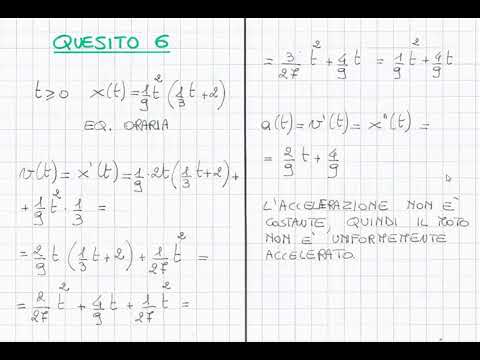 QUESITO 6
t⩾0 x(t)=1/9 t² (1/3 t+2)
EQ. ORARIA
v(t)= x'(t)=1/9·2t(1/3 t+2)+
+1/9 t²·1/3 =
=2/9 t (1/3 t+2)+1/27 t² =
=2/27 t²+4/9 t+1/27 t²=
=3/27 t²+4/9 t =1/9 t²+4/9 t
a(t)=v'(t)=x"(t) =
=2/9 t+4/9
L'ACCELERAZIONE NON E'
COSTANTE, QUINDI IL MOTO
NON E' UNIFORMEMENTE
ACCELERATO.